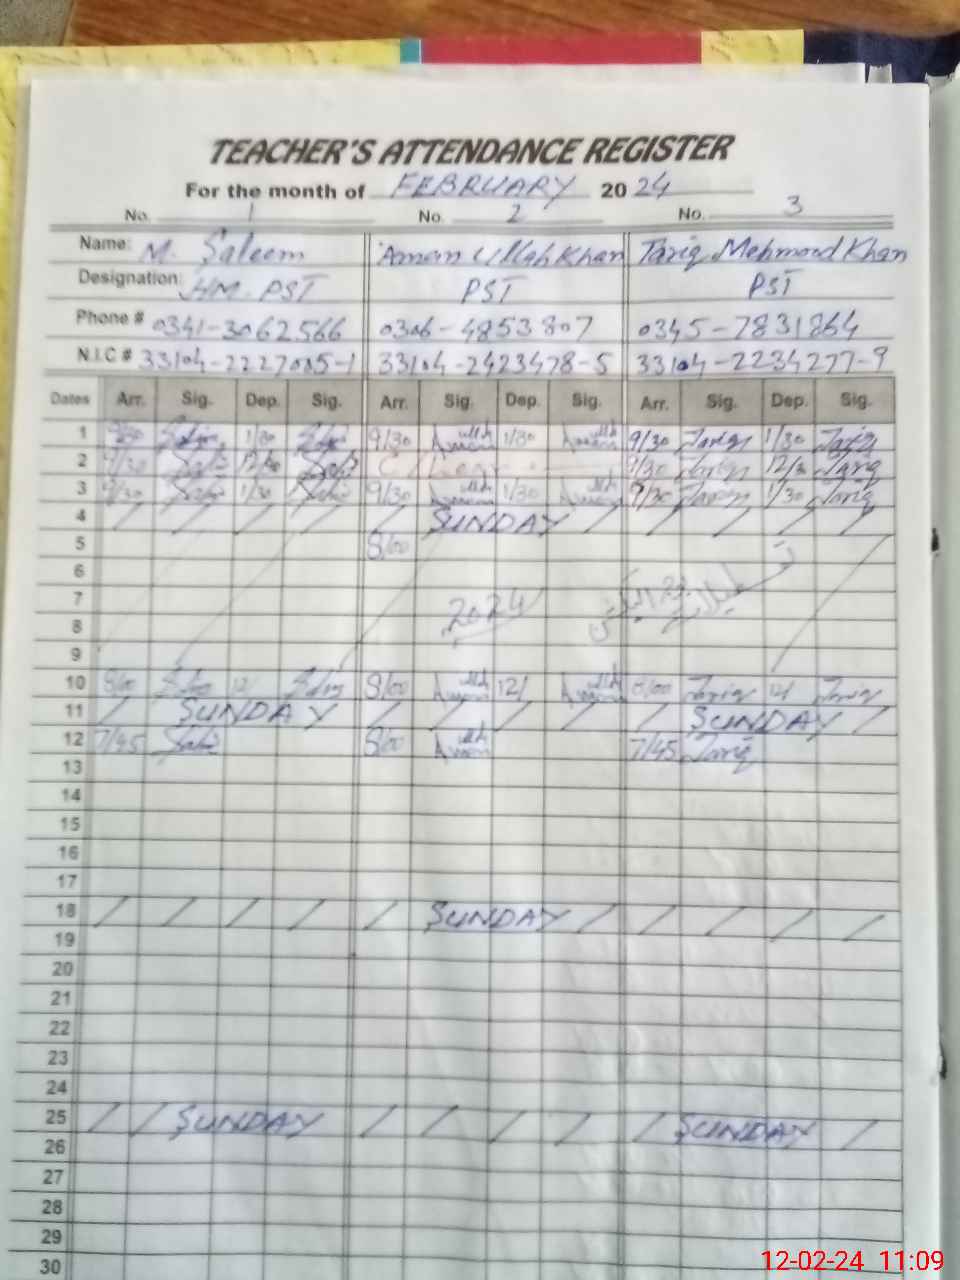 TEACHER'S ATTENDANCE REGISTER
For the month of FEBRUARY 20 24
No. 1 No. 2 No. 3
Name: M. Saleem Aman Ullah Khan Tariq Mehmood Khan
Designation: HM. PST PST PST
Phone # 0341-3062566 0306-4853807 0345-7831864
N.I.C # 33104-2227085-1 33104-2423478-5 33104-2234277-9
Dates Arr. Sig. Dep. Sig. Arr. Sig. Dep. Sig. Arr. Sig. Dep. Sig.
1 9/30 1/30 9/30 Aman ullah 1/30 Aman ullah 9/30 Tariq 1/30 Tariq
2 9/30 9/30 Tariq 12/30 Tariq
3 9/30 1/30 9/30 Aman ullah 1/30 Aman ullah 9/30 Tariq 1/30 Tariq
4 SUNDAY
5 8/00
6
7 2024 تعطیلات
8
9
10 8/00 12/ 8/00 Aman ullah 12/ Aman ullah 8/00 Tariq 12/ Tariq
11 SUNDAY SUNDAY
12 7/45 8/00 Aman ullah 7/45 Tariq
13
14
15
16
17
18 SUNDAY
19
20
21
22
23
24
25 SUNDAY SUNDAY
26
27
28
29
30
12-02-24 11:09